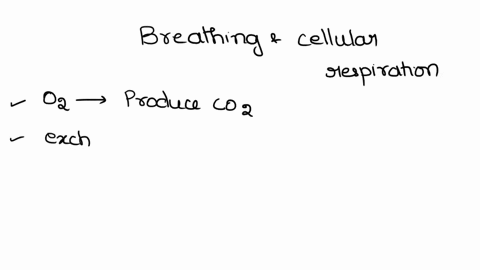 Breathing & cellular
respiration
✓ O₂ → Produce CO₂
✓ exch